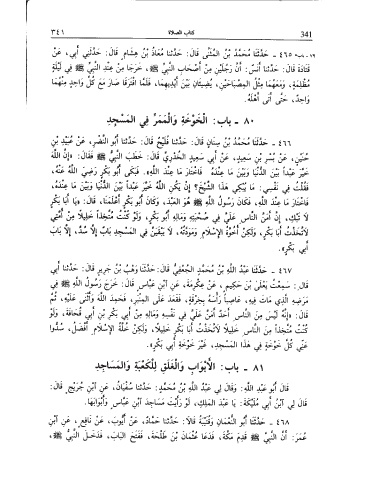 ٣٤١ كتاب الصلاة 341
٤٦٥ - حَدَّثَنَا مُحَمَّدُ بْنُ الْمُثَنَّى قَالَ: حَدَّثَنَا مُعَاذُ بْنُ هِشَامٍ قَالَ: حَدَّثَنِي أَبِي، عَنْ
قَتَادَةَ قَالَ: حَدَّثَنَا أَنَسٌ: أَنَّ رَجُلَيْنِ مِنْ أَصْحَابِ النَّبِيِّ ﷺ، خَرَجَا مِنْ عِنْدِ النَّبِيِّ ﷺ فِي لَيْلَةٍ
مُظْلِمَةٍ، وَمَعَهُمَا مِثْلُ الْمِصْبَاحَيْنِ، يُضِيئَانِ بَيْنَ أَيْدِيهِمَا، فَلَمَّا افْتَرَقَا صَارَ مَعَ كُلِّ وَاحِدٍ مِنْهُمَا
وَاحِدٌ، حَتَّى أَتَى أَهْلَهُ.
٨٠ - باب: الْخَوْخَةِ وَالْمَمَرِّ فِي الْمَسْجِدِ
٤٦٦ - حَدَّثَنَا مُحَمَّدُ بْنُ سِنَانٍ قَالَ: حَدَّثَنَا فُلَيْحٌ قَالَ: حَدَّثَنَا أَبُو النَّضْرِ، عَنْ عُبَيْدِ بْنِ
حُنَيْنٍ، عَنْ بُسْرِ بْنِ سَعِيدٍ، عَنْ أَبِي سَعِيدٍ الْخُدْرِيِّ قَالَ: خَطَبَ النَّبِيُّ ﷺ فَقَالَ: «إِنَّ اللَّهَ
خَيَّرَ عَبْداً بَيْنَ الدُّنْيَا وَبَيْنَ مَا عِنْدَهُ، فَاخْتَارَ مَا عِنْدَ اللَّهِ». فَبَكَى أَبُو بَكْرٍ رَضِيَ اللَّهُ عَنْهُ،
فَقُلْتُ فِي نَفْسِي: مَا يُبْكِي هَذَا الشَّيْخَ؟ إِنْ يَكُنِ اللَّهُ خَيَّرَ عَبْداً بَيْنَ الدُّنْيَا وَبَيْنَ مَا عِنْدَهُ،
فَاخْتَارَ مَا عِنْدَ اللَّهِ، فَكَانَ رَسُولُ اللَّهِ ﷺ هُوَ الْعَبْدَ، وَكَانَ أَبُو بَكْرٍ أَعْلَمَنَا، قَالَ: «يَا أَبَا بَكْرٍ
لَا تَبْكِ، إِنَّ أَمَنَّ النَّاسِ عَلَيَّ فِي صُحْبَتِهِ وَمَالِهِ أَبُو بَكْرٍ، وَلَوْ كُنْتُ مُتَّخِذاً خَلِيلاً مِنْ أُمَّتِي
لَاتَّخَذْتُ أَبَا بَكْرٍ، وَلَكِنْ أُخُوَّةُ الْإِسْلَامِ وَمَوَدَّتُهُ، لَا يَبْقَيَنَّ فِي الْمَسْجِدِ بَابٌ إِلَّا سُدَّ، إِلَّا بَابَ
أَبِي بَكْرٍ».
٤٦٧ - حَدَّثَنَا عَبْدُ اللَّهِ بْنُ مُحَمَّدٍ الْجُعْفِيُّ قَالَ: حَدَّثَنَا وَهْبُ بْنُ جَرِيرٍ قَالَ: حَدَّثَنَا أَبِي
قَالَ: سَمِعْتُ يَعْلَى بْنَ حَكِيمٍ، عَنْ عِكْرِمَةَ، عَنِ ابْنِ عَبَّاسٍ قَالَ: خَرَجَ رَسُولُ اللَّهِ ﷺ فِي
مَرَضِهِ الَّذِي مَاتَ فِيهِ، عَاصِباً رَأْسَهُ بِخِرْقَةٍ، فَقَعَدَ عَلَى الْمِنْبَرِ، فَحَمِدَ اللَّهَ وَأَثْنَى عَلَيْهِ، ثُمَّ
قَالَ: «إِنَّهُ لَيْسَ مِنَ النَّاسِ أَحَدٌ أَمَنَّ عَلَيَّ فِي نَفْسِهِ وَمَالِهِ مِنْ أَبِي بَكْرِ بْنِ أَبِي قُحَافَةَ، وَلَوْ
كُنْتُ مُتَّخِذاً مِنَ النَّاسِ خَلِيلاً لَاتَّخَذْتُ أَبَا بَكْرٍ خَلِيلاً، وَلَكِنْ خُلَّةُ الْإِسْلَامِ أَفْضَلُ، سُدُّوا
عَنِّي كُلَّ خَوْخَةٍ فِي هَذَا الْمَسْجِدِ، غَيْرَ خَوْخَةِ أَبِي بَكْرٍ».
٨١ - باب: الْأَبْوَابِ وَالْغَلَقِ لِلْكَعْبَةِ وَالْمَسَاجِدِ
قَالَ أَبُو عَبْدِ اللَّهِ: وَقَالَ لِي عَبْدُ اللَّهِ بْنُ مُحَمَّدٍ: حَدَّثَنَا سُفْيَانُ، عَنِ ابْنِ جُرَيْجٍ قَالَ:
قَالَ لِي ابْنُ أَبِي مُلَيْكَةَ: يَا عَبْدَ الْمَلِكِ، لَوْ رَأَيْتَ مَسَاجِدَ ابْنِ عَبَّاسٍ وَأَبْوَابَهَا.
٤٦٨ - حَدَّثَنَا أَبُو النُّعْمَانِ وَقُتَيْبَةُ قَالَا: حَدَّثَنَا حَمَّادٌ، عَنْ أَيُّوبَ، عَنْ نَافِعٍ، عَنِ ابْنِ
عُمَرَ: أَنَّ النَّبِيَّ ﷺ قَدِمَ مَكَّةَ، فَدَعَا عُثْمَانَ بْنَ طَلْحَةَ، فَفَتَحَ الْبَابَ، فَدَخَلَ النَّبِيُّ ﷺ،